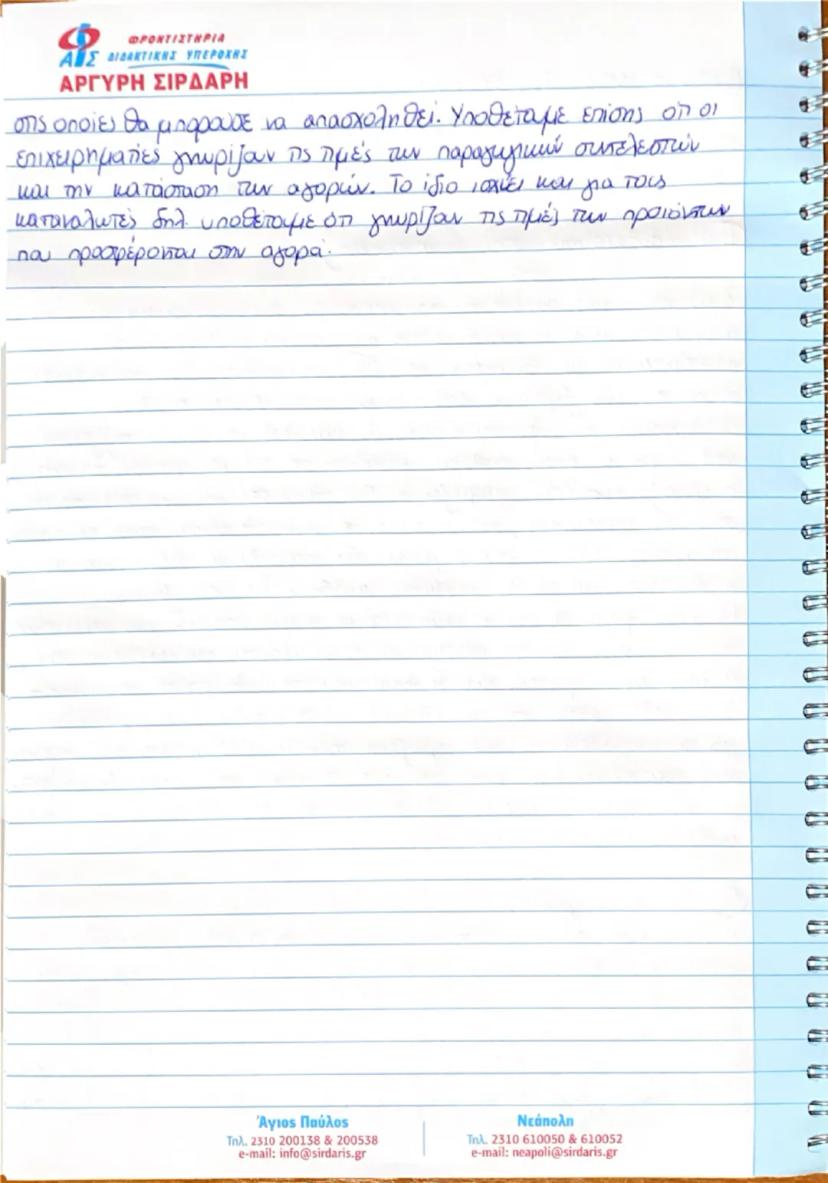 ΦΡΟΝΤΙΣΤΗΡΙΑ
ΑΣ ΔΙΔΑΚΤΙΚΗΣ ΥΠΕΡΟΧΗΣ
ΑΡΓΥΡΗ ΣΙΡΔΑΡΗ
στις οποίες θα μπορούσε να απασχοληθεί. Υποθέτουμε επίσης ότι οι
επιχειρηματίες γνωρίζουν τις τιμές των παραγωγικών συντελεστών
και την κατάσταση των αγορών. Το ίδιο ισχύει και για τους
καταναλωτές δηλ. υποθέτουμε ότι γνωρίζουν τις τιμές των προϊόντων
που προσφέρονται στην αγορά.
Άγιος Παύλος
Τηλ. 2310 200138 & 200538
e-mail: info@sirdaris.gr
Νεάπολη
Τηλ. 2310 610050 & 610052
e-mail: neapoli@sirdaris.gr